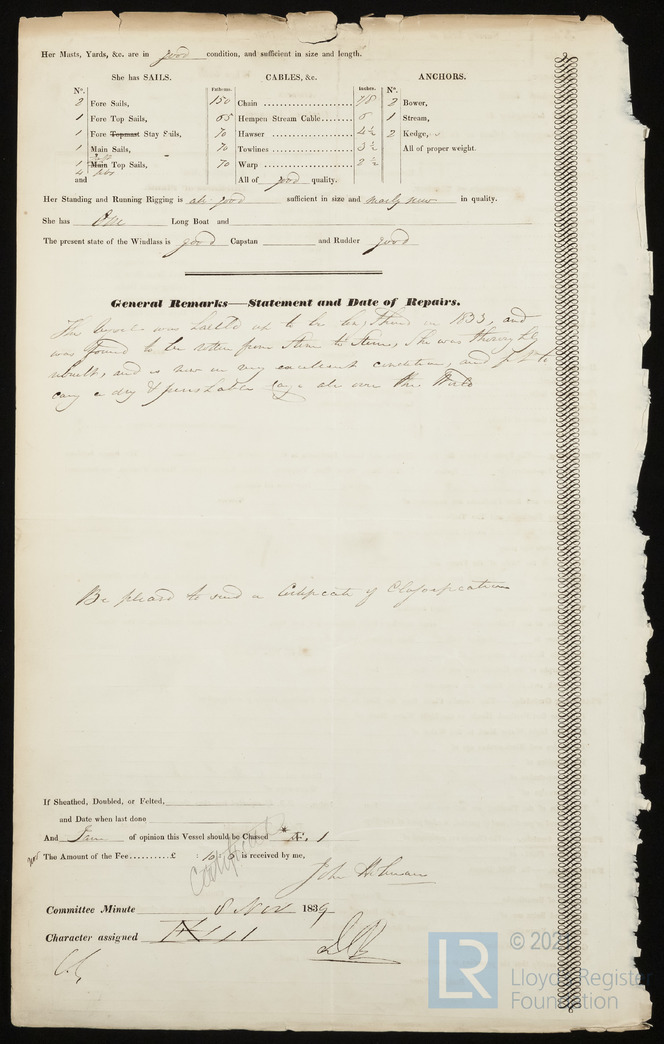 Her Masts, Yards, &c. are in good condition, and sufficient in size and length.
She has SAILS. CABLES, &c. ANCHORS.
N°. Fathoms. Inches. N°.
2 Fore Sails, 150 Chain 7/8 2 Bower,
1 Fore Top Sails, 65 Hempen Stream Cable 6 1 Stream,
1 Fore Topmast Stay Sails, 70 Hawser 4½ 2 Kedge,
1 Main Sails, 70 Towlines 3½ All of proper weight.
1 Main Top Sails, 70 Warp 2½
4 Jibs
and All of good quality.
Her Standing and Running Rigging is all good sufficient in size and nearly new in quality.
She has One Long Boat and
The present state of the Windlass is good Capstan and Rudder good
General Remarks—Statement and Date of Repairs.
The vessel was hauled up to be lengthened in 1833, and
was found to be rotten from Stem to Stern, She was thoroughly
rebuilt, and is now in very excellent condition, and fit to
carry a dry & perishable cargo all over the World
Be pleased to send a Certificate of Classification
If Sheathed, Doubled, or Felted,
and Date when last done
And I am of opinion this Vessel should be Classed Æ 1
The Amount of the Fee £ is received by me,
certificate
John
Committee Minute 8 Nov 1839
Character assigned Æ 1
© 202
LR
Lloyd's Register
Foundation